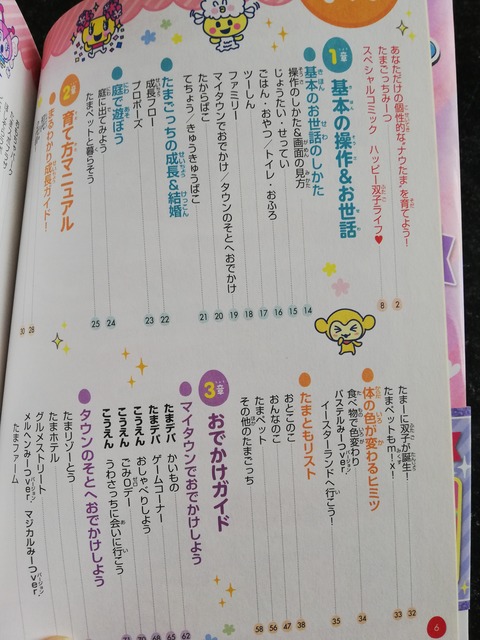 あなただけの個性的な“ナウたま”を育てよう! 2
たまごっちみーつ
スペシャルコミック ハッピー双子ライフ♥ 8
1章 基本の操作&お世話
基本のお世話のしかた
操作のしかた&画面の見方 14
じょうたい・せってい 15
ごはん・おやつ/トイレ・おふろ 16
ツーしん 17
ファミリー 18
マイタウンでおでかけ/タウンのそとへおでかけ 19
たからばこ 20
てちょう/きゅうきゅうばこ 21
たまごっちの成長&結婚
成長フロー 22
プロポーズ 23
庭で遊ぼう
庭に出てみよう 24
たまペットと暮らそう 25
2章 育て方マニュアル
まるわかり成長ガイド! 28
30
たまーに双子が誕生! 32
たまペットもmix! 33
体の色が変わるヒミツ
食べ物で色変わり 34
パステルみーつver.
イースターランドへ行こう! 35
たまともリスト
おとこのこ 38
おんなのこ 47
たまペット 56
その他のたまごっち 58
3章 おでかけガイド
マイタウンでおでかけしよう
たまデパ かいもの 62
たまデパ ゲームコーナー 65
こうえん おしゃべりしよう 68
こうえん ごみ0デー 70
こうえん うわさっちに会いに行こう 71
タウンのそとへおでかけしよう
たまリゾーとう
たまホテル
グルメストリート
メルヘンみーつver. マジカルみーつver.
たまファーム
6